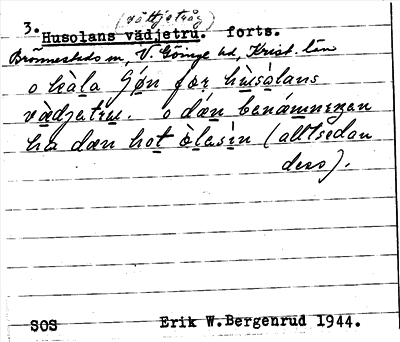 (vättjetråg)
3. Husolans vädjetru. forts.
Brönnestads sn, V. Göinge hd, Krist. län
o kàla jøn før hùsòlans
vædjetru. o dán benámningen
ha dæn hot òlasin (alltsedan
dess).
SOS Erik W.Bergenrud 1944.